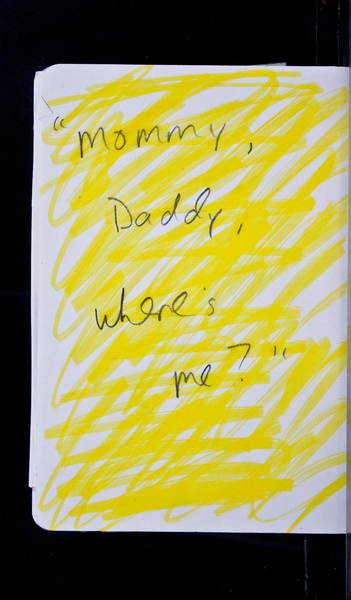 "Mommy,
Daddy,
where's
me?"